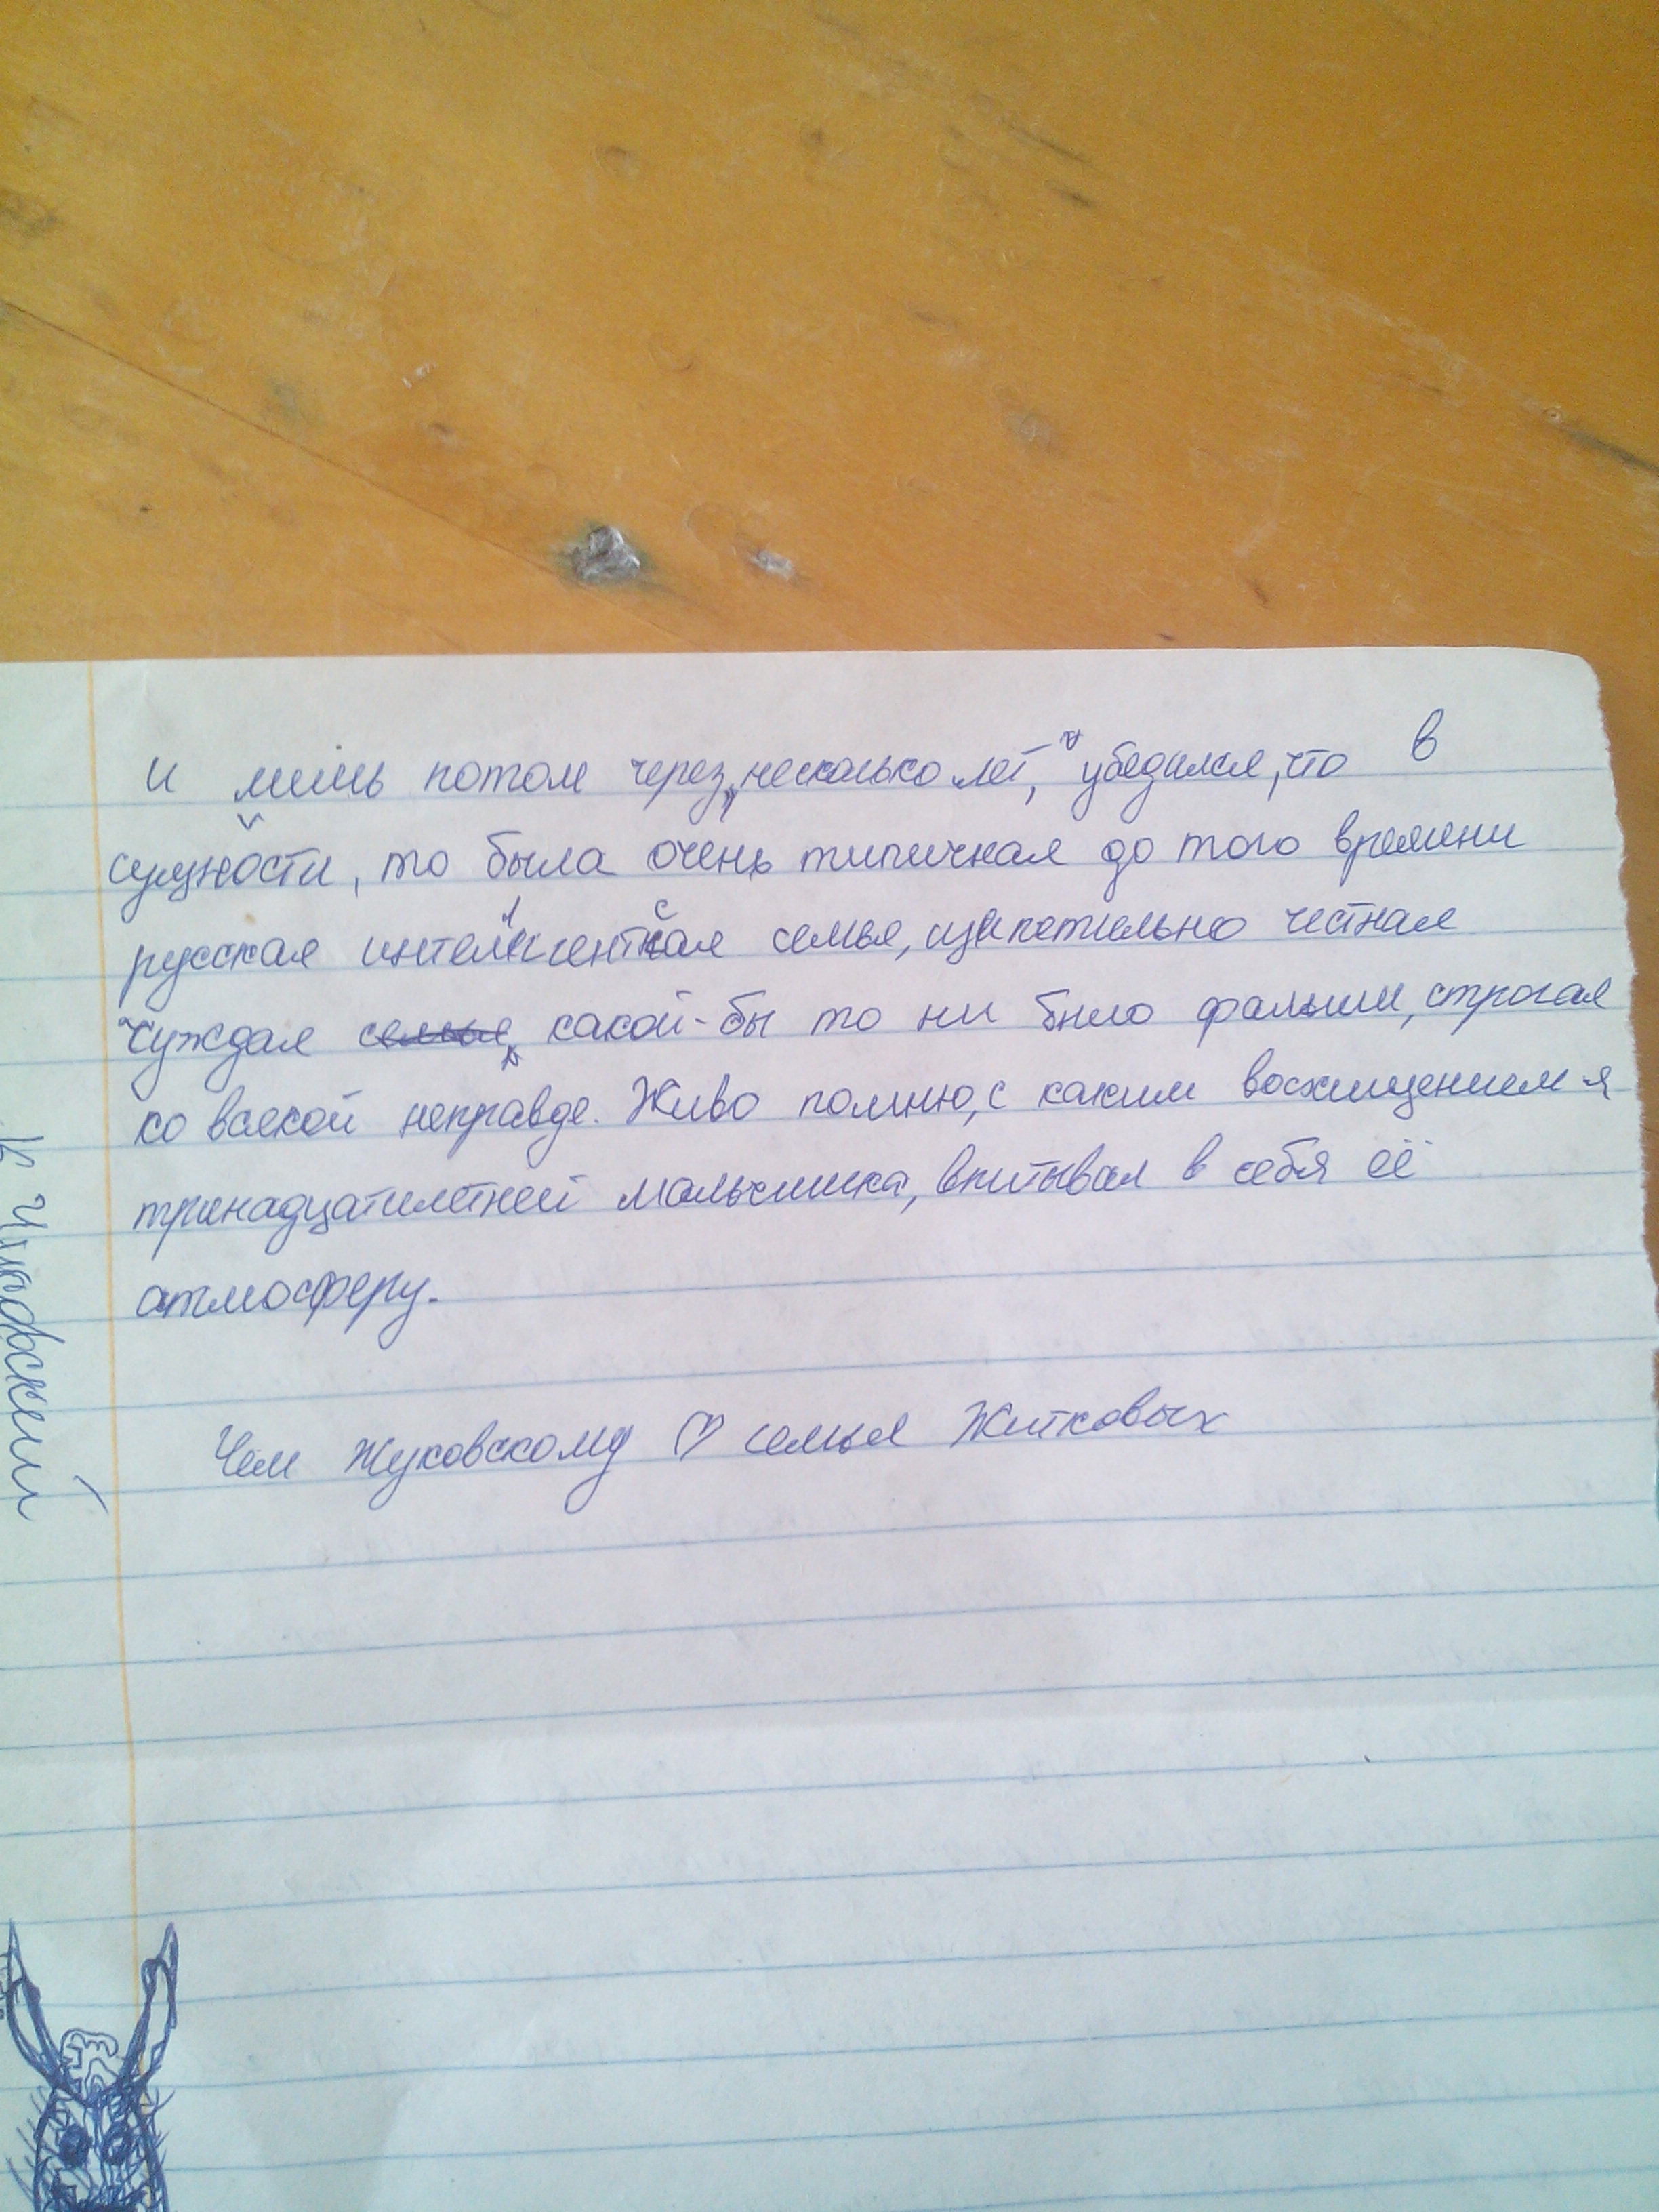 и лишь потом через, несколько лет, я убедился, что в
сущности, то была очень типичная до того времени
русская интеллигентская семья, щипетильно честная
чуждая семья, какой-бы то ни было фальши, строгая
ко всякой неправде. Живо помню, с каким восхищением я
тринадцатилетней мальчишка, впитывал в себя её
атмосферу.
Чем Жуковскому ♡ семья Житковых
К Чуковский